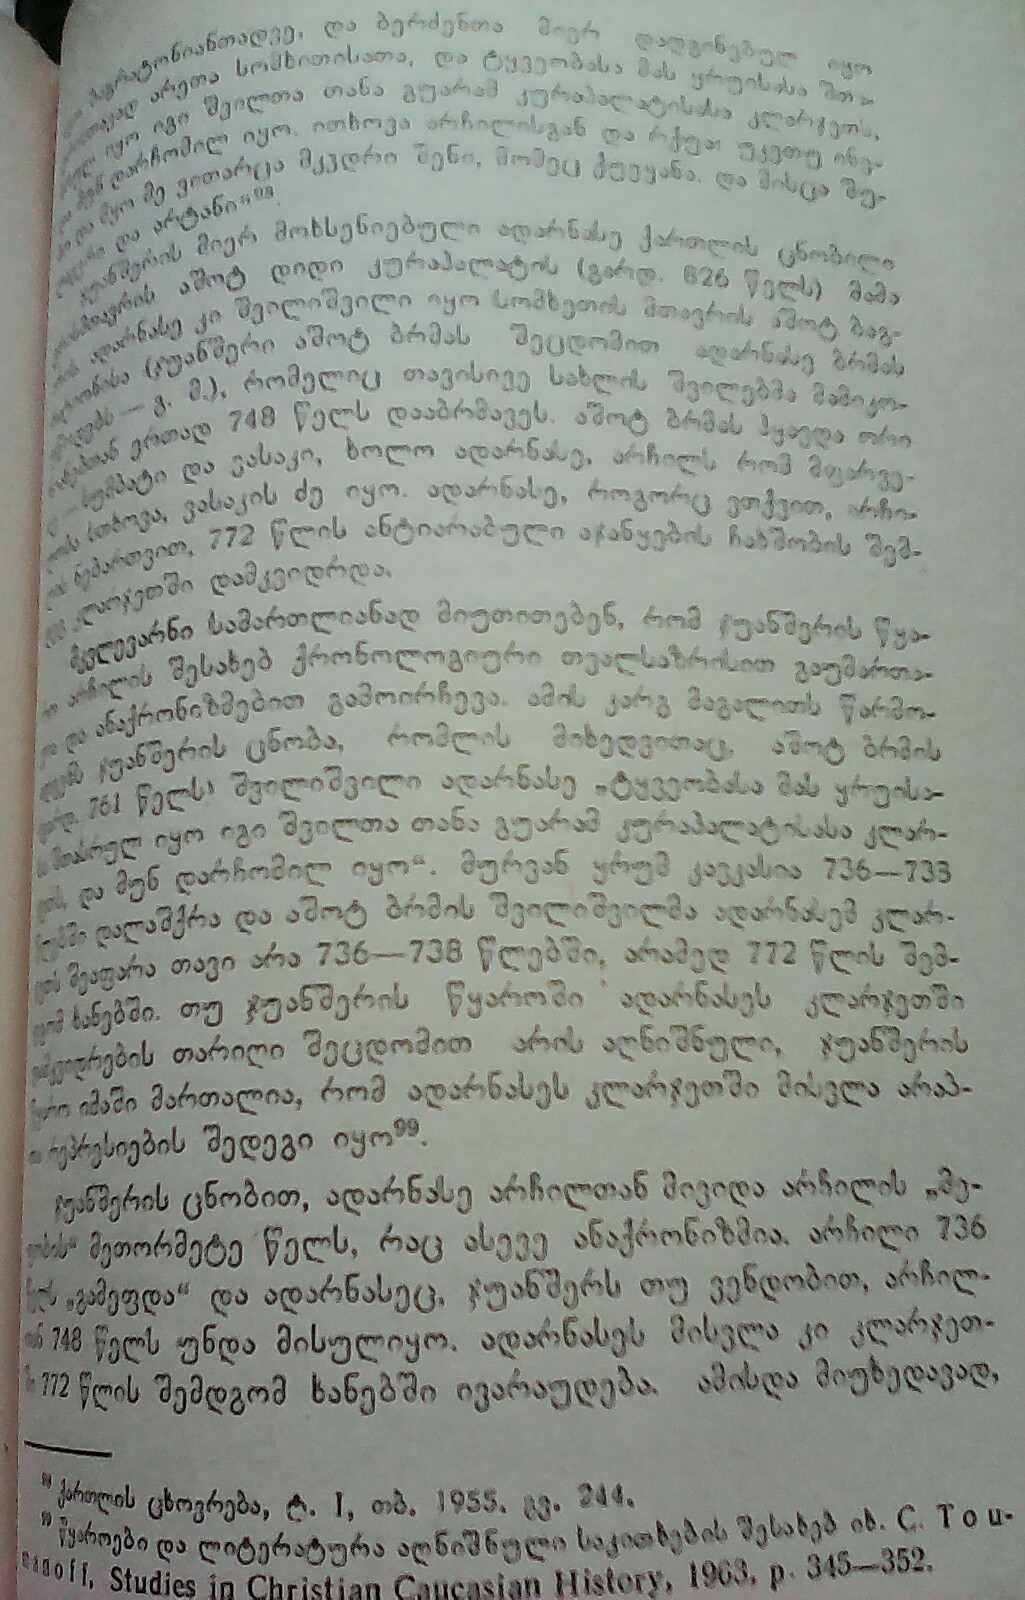 ბაგრატონიანთადვე, და ბერძენთა მიერ დადგინებულ იყო
არეთა სომხითისათა, და ტყვეობასა მას ყრუისასა შთა-
იყო იგი შვილთა თანა გუარამ კურაპალატისასა კლარჯეთს,
მუნ დარჩომილ იყო. ითხოვა არჩილისგან და რქუა: უკეთუ ინე-
და მყო მე ვითარცა მკვდრი შენი, მომეც ქუეყანა. და მისცა შუ-
და არტანი“⁹⁸.
ჯუანშერის მიერ მოხსენიებული ადარნასე ქართლის ცნობილი
აშოტ დიდი კურაპალატის (გარდ. 826 წელს) მამა
ადარნასე კი შვილიშვილი იყო სომხეთის მთავრის აშოტ ბაგ-
(ჯუანშერი აშოტ ბრმას შეცდომით ადარნასე ბრმას
— გ. მ.), რომელიც თავისივე სახლის შვილებმა მამიკო-
ერთად 748 წელს დააბრმავეს. აშოტ ბრმას ჰყავდა ორი
სუმბატი და ვასაკი, ხოლო ადარნასე, არჩილს რომ მფარვე-
სთხოვა, ვასაკის ძე იყო. ადარნასე, როგორც ვთქვით, არჩი-
ნებართვით, 772 წლის ანტიარაბული აჯანყების ჩახშობის შემ-
კლარჯეთში დამკვიდრდა.
მკვლევარნი სამართლიანად მიუთითებენ, რომ ჯუანშერის წყა-
არჩილის შესახებ ქრონოლოგიური თვალსაზრისით გაუმართა-
და ანაქრონიზმებით გამოირჩევა. ამის კარგ მაგალითს წარმო-
ჯუანშერის ცნობა, რომლის მიხედვითაც, აშოტ ბრმის
761 წელს) შვილიშვილი ადარნასე „ტყვეობასა მას ყრუისა-
შთასრულ იყო იგი შვილთა თანა გუარამ კურაპალატისასა კლარ-
და მუნ დარჩომილ იყო“. მურვან ყრუმ კავკასია 736—738
დალაშქრა და აშოტ ბრმის შვილიშვილმა ადარნასემ კლარ-
შეაფარა თავი არა 736—738 წლებში, არამედ 772 წლის შემ-
ხანებში. თუ ჯუანშერის წყაროში ადარნასეს კლარჯეთში
დამკვიდრების თარიღი შეცდომით არის აღნიშნული, ჯუანშერის
წყარო იმაში მართალია, რომ ადარნასეს კლარჯეთში მისვლა არაბ-
რეპრესიების შედეგი იყო⁹⁹.
ჯუანშერის ცნობით, ადარნასე არჩილთან მივიდა არჩილის „მე-
ფობის“ მეთორმეტე წელს, რაც ასევე ანაქრონიზმია. არჩილი 736
წელს „გამეფდა“ და ადარნასეც, ჯუანშერს თუ ვენდობით, არჩილ-
თან 748 წელს უნდა მისულიყო. ადარნასეს მისვლა კი კლარჯეთ-
ში 772 წლის შემდგომ ხანებში ივარაუდება. ამისდა მიუხედავად,
⁹⁸ ქართლის ცხოვრება, ტ. I, თბ. 1955. გვ. 244.
⁹⁹ წყაროები და ლიტერატურა აღნიშნული საკითხების შესახებ იხ. C. Tou-
manoff, Studies in Christian Caucasian History, 1963, p. 345—352.